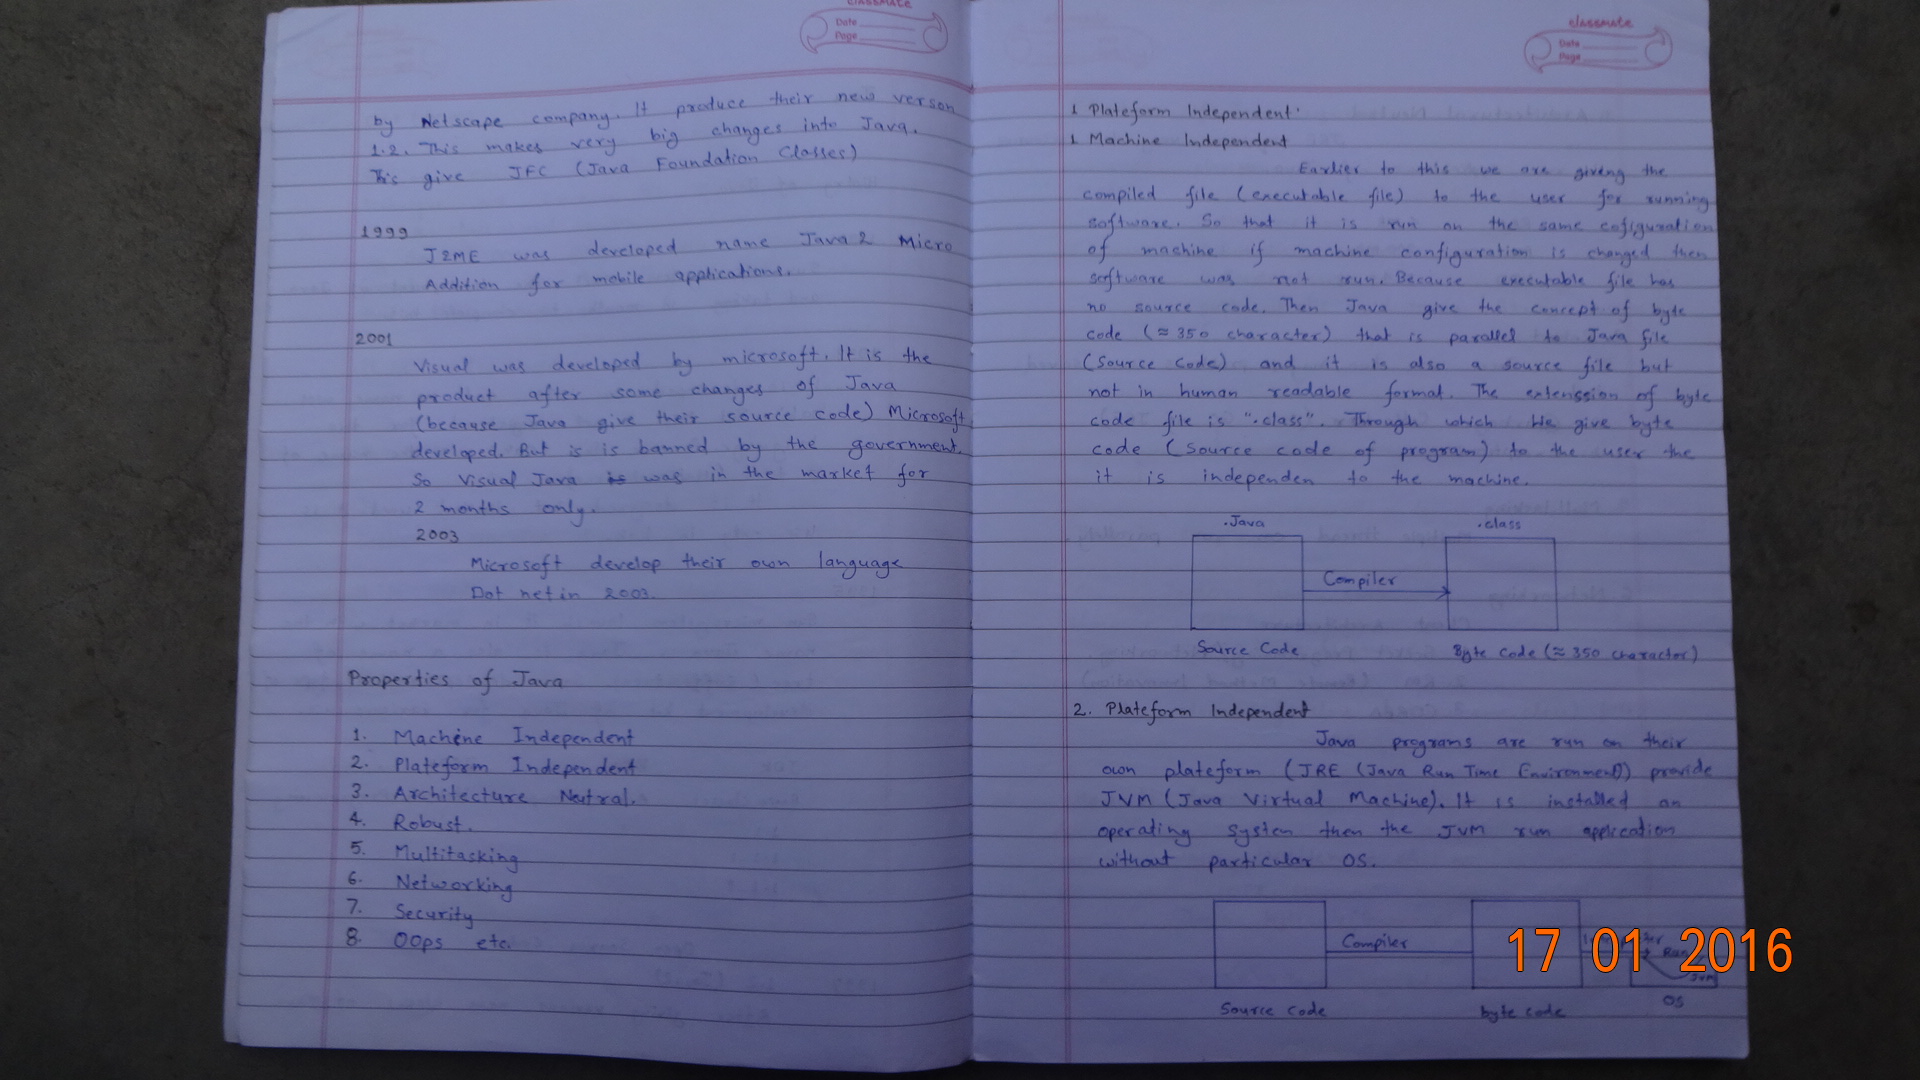 classmate
Date
Page
by Netscape company. It produce their new verson
1.2. This makes very big changes into Java.
This give JFC (Java Foundation Classes)
1999
J2ME was developed name Java 2 Micro
Addition for mobile applications.
2001
Visual was developed by microsoft. It is the
product after some changes of Java
(because Java give their source code) Microsoft
developed. But is is banned by the government.
So Visual Java is was in the market for
2 months only.
2003
Microsoft develop their own language
Dot net in 2003.
Properties of Java
1. Machine Independent
2. Plateform Independent
3. Architecture Neutral.
4. Robust.
5. Multitasking
6. Networking
7. Security
8. OOps etc.
classmate
Date
Page
1 Plateform Independent
1 Machine Independent
Earlier to this we are giving the
compiled file (executable file) to the user for running
software. So that it is run on the same cofiguration
of machine if machine configuration is changed then
software was not run. Because executable file has
no source code. Then Java give the concept of byte
code (≈ 350 character) that is parallel to Java file
(Source Code) and it is also a source file but
not in human readable format. The extension of byte
code file is ".class". Through which We give byte
code (Source code of program) to the user the
it is independen to the machine.
.Java .class
Compiler
Source Code Byte code (≈ 350 character)
2. Plateform Independent
Java programs are run on their
own plateform (JRE (Java Run Time Environment)) provide
JVM (Java Virtual Machine). It is installed an
operating System then the JVM run application
without particular OS.
Compiler
Run
JVM
Source code byte code OS
17 01 2016